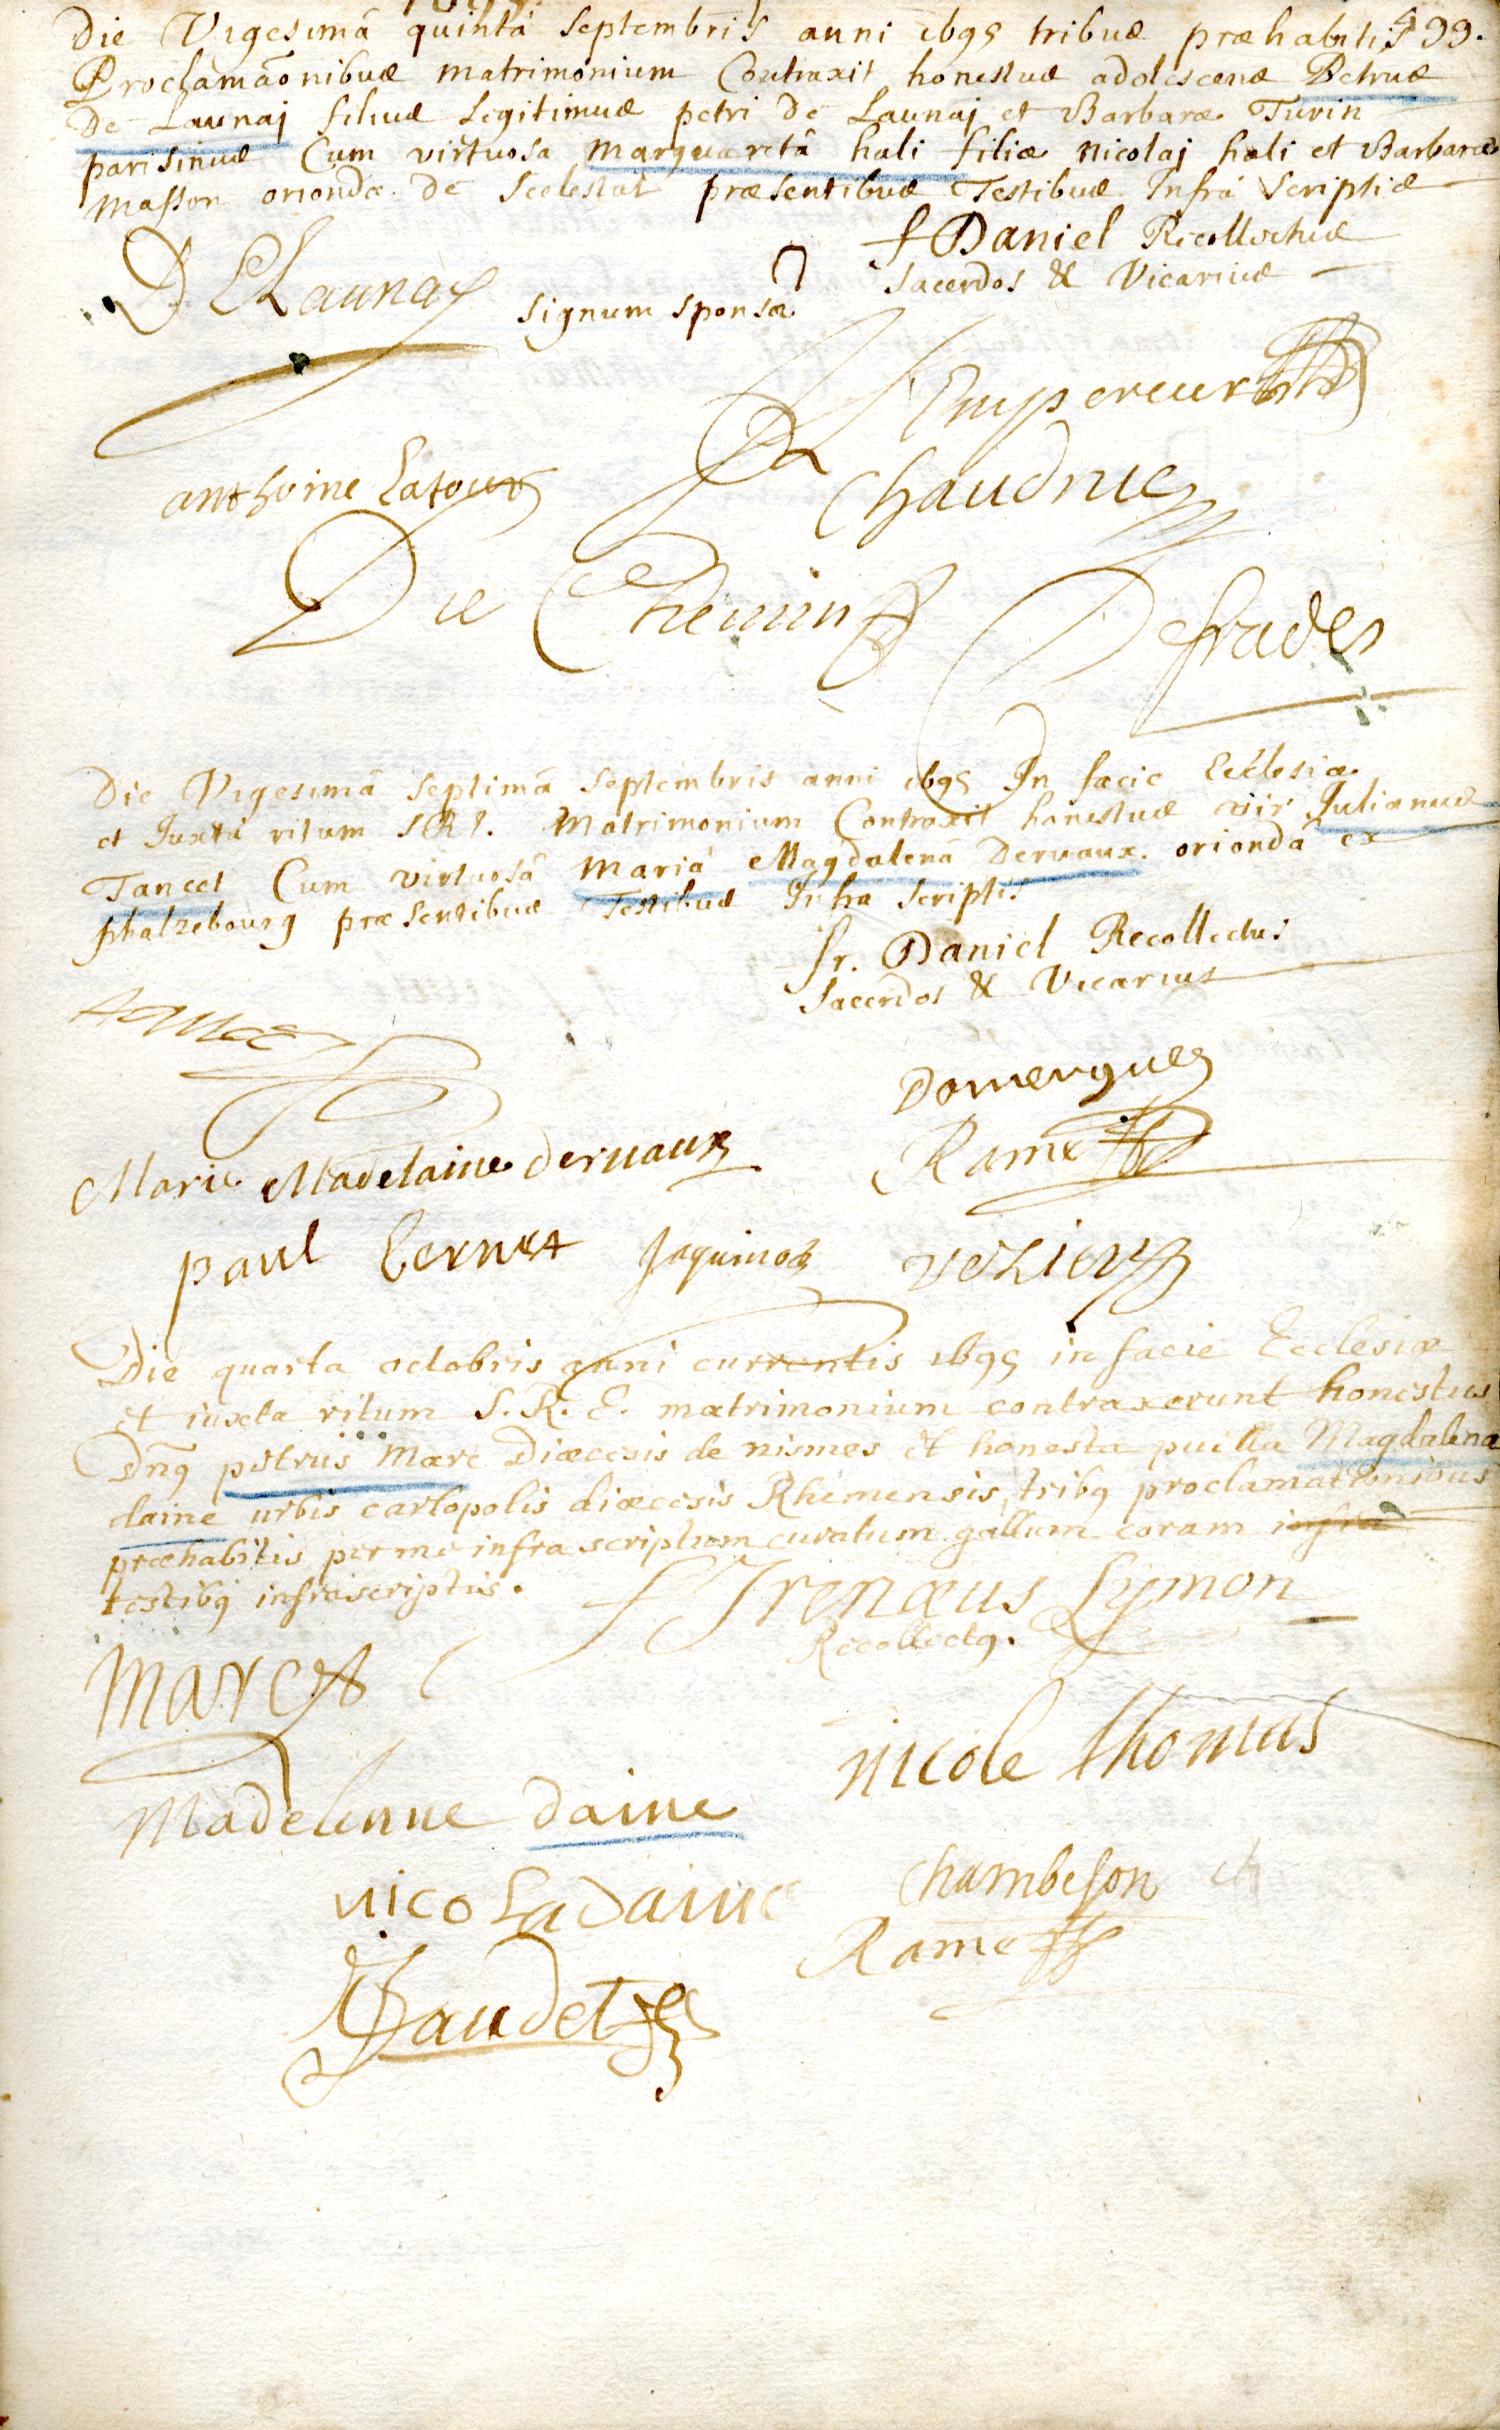 Die Vigesimâ quintâ Septembris anni 1695 tribus præhabitis 499.
Proclamaõnibus matrimonium Contraxit honestus adolescens Petrus
De Launaj filius Legitimus petri De Launaj et Barbaræ Turin
parisinus Cum virtuosa Marguaretâ hali filiæ Nicolaj hali et Barbaræ
Masson orionda de Scelestat præsentibus Testibus Infrà Scriptis
f Daniel Recollectus
Sacerdos & Vicarius
DELaunay signum sponsæ
Lempereur
anthoine Latour
Chaudrue
Du Chemin Defrades
Die Vigesimâ Septimâ Septembris anni 1695 In facie Ecclesiæ
et Juxtà ritum SRE. Matrimonium Contraxit honestus vir Julianus
Tancet Cum virtuosâ Mariâ Magdalenâ Dervaux. oriondâ ex
phalzebourg præsentibus Testibus Infra scriptis
fr. Daniel Recollectus
Sacerdos & Vicarius
Domergue
Marie Madelaine dervaux Rame
paul Cernet Jaquinot vesien
Die quarta octobris anni currentis 1695 in facie Ecclesiæ
et iuxta ritum S. R. E. matrimonium contraxerunt honestus
Dnq petrus Marc Diœcesis de nismes et honesta puella Magdalena
daine urbis carlopolis diœcesis Rhemensis, tribq proclamationibus
præhabitis per me infra scriptum curatum gallum coram infra
testibq infrascriptis. f Irenæus Lymon
Recollectq.
Marc
nicole thomas
Madelenne daine
nicoladaine Chambeson
Rame
Baudet